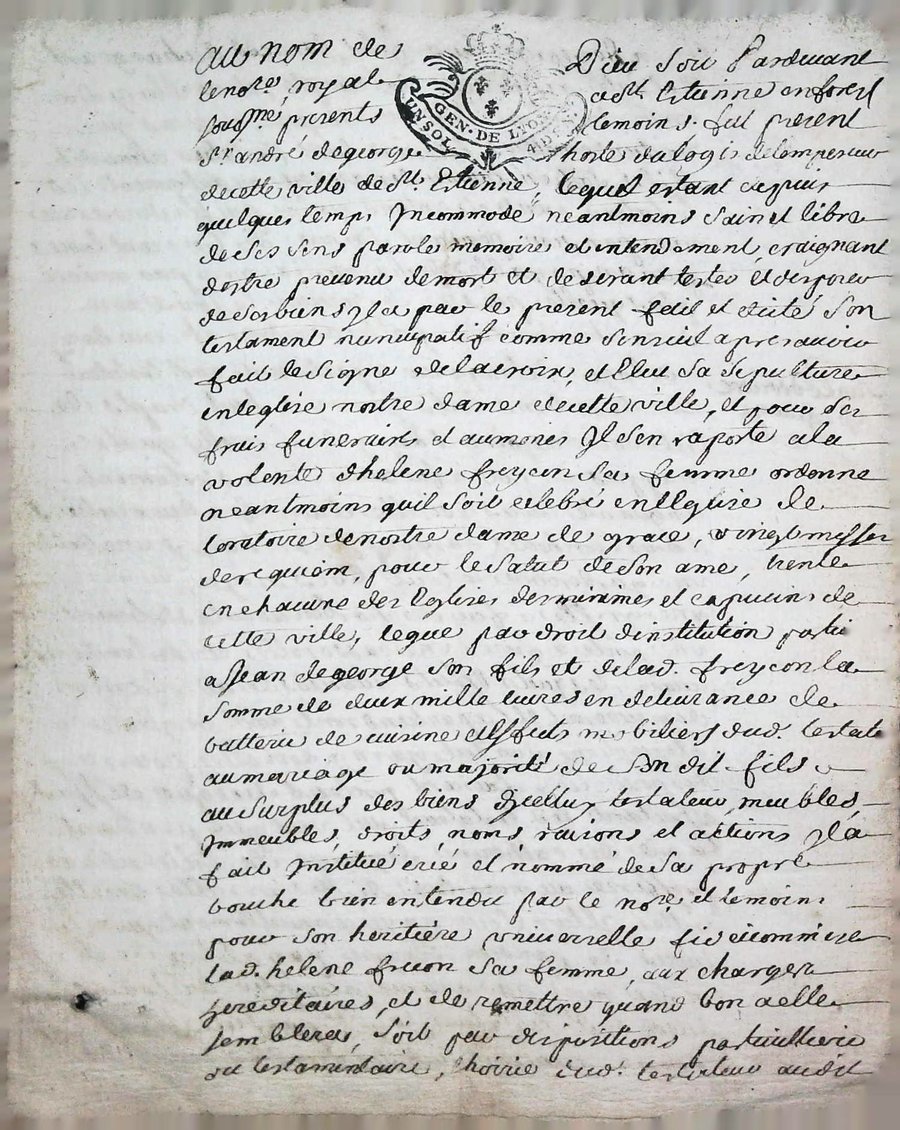 au nom de Dieu soit Pardevant
le not.re royal a S.t Estienne en forest
soussigné, presents temoins fut present
GEN. DE LYON
UN SOL 4 DEN
S.r andré degeorge hoste du logis de lempereur
de cette ville de S.t Estienne, lequel estant depuis
quelques temps Incommodé neantmoins sain et libre
de ses sens parole memoire et entendement, craignant
destre prevenu de mort et desirant tester et disposer
de ses biens y la par le present fait et dicté son
testament nuncupatif comme sensuit apres avoir
fait le signe de la croix, et Elu sa sepulture
en leglise nostre dame de cette ville, et pour ses
frais funeraires et aumones Il sen raporte a la
volente dhelene freycon sa femme ordonne
neantmoins quil soit celebré en lEglise de
loratoire de nostre dame de grace, vingt messes
de requiem, pour le salut de son ame, trente
en chacune des Eglises des minimes et capucins de
cette ville, legue par droit dinstitution partie
a Jean degeorge son fils et de lad. freycon la
somme de deux mille livres en delivrance de
batterie de cuisine et effets mobiliers dud. testate
au mariage ou majorité de son dit fils
au surplus des biens dycelluy testateur, meubles
Immeubles, droits, noms, raisons et actions Il a
fait Institué créé et nommé de sa propre
bouche bien entendu par le no.re et temoins
pour son heritiere universelle fideicommise
lad. helene fricon sa femme, aux charges
hereditaires, et de remettre quand bon a elle
semblera, soit par dispositions particulliere
ou testamentaire, lhoirie dud. testateur audit